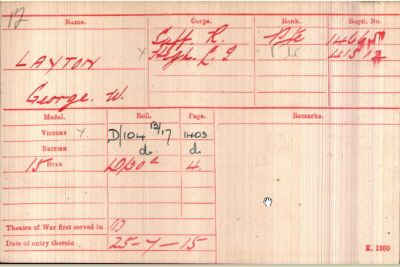 Name. Corps. Rank. Regtl. No.
Suff. R. Pte 14665
LAYTON X High. L. I 41512
George. W.
Medal. Roll. Page. Remarks.
VICTORY X. D/104 B/17 1403
BRITISH do. do.
15 STAR 4.
Theatre of War first served in
Date of entry therein 25-7-15 K. 1380